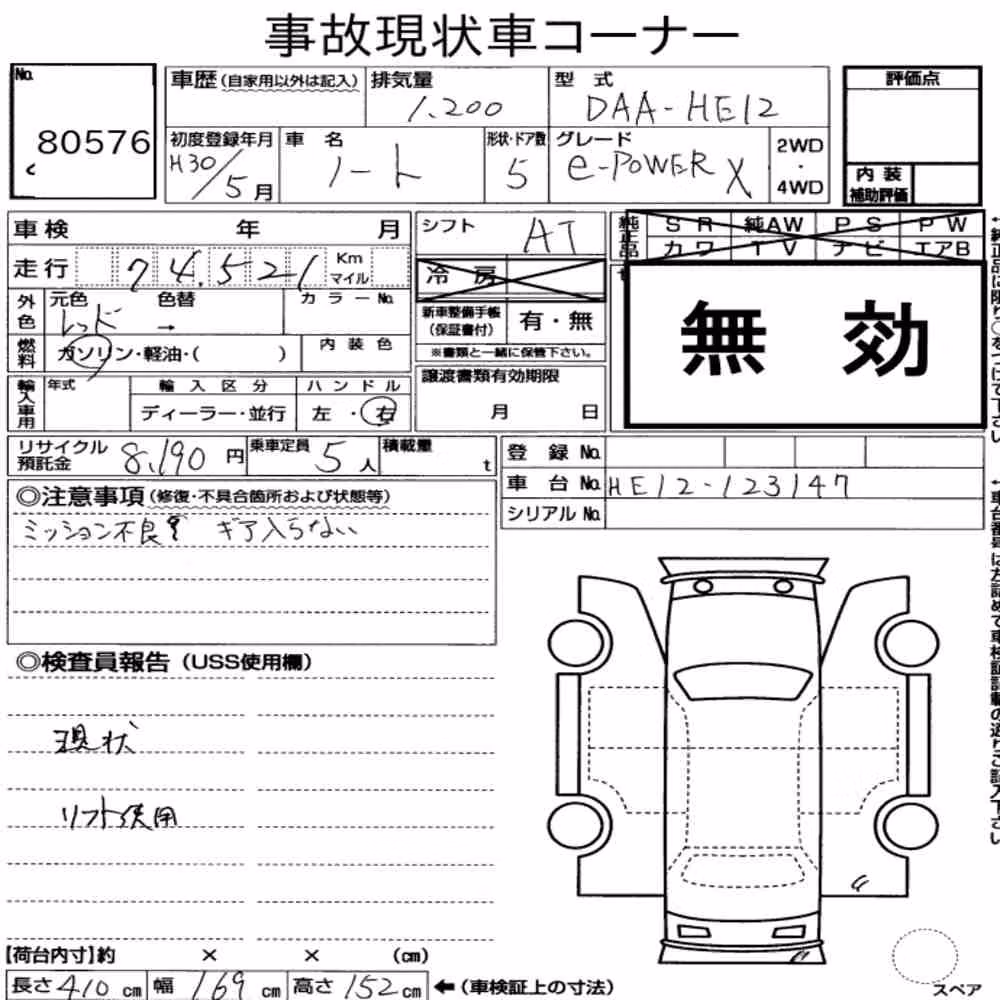 事故現状車コーナー
No. 80576
車歴(自家用以外は記入) 排気量 1.200 型式 DAA-HE12 評価点
初度登録年月 H30/5月 車名 ノート 形状・ドア数 5 グレード e-POWER X 2WD・4WD 内装補助評価
車検 年 月 シフト AT 純正品 SR 純AW PS PW
カワ TV ナビ エアB
走行 74.521 Km マイル 冷房
外色 元色 レッド 色替 → カラーNo. 新車整備手帳(保証書付) 有・無
※書類と一緒に保管下さい。
無効
燃料 ガソリン・軽油・( ) 内装色
譲渡書類有効期限
月 日
輸入車用 年式 輸入区分 ハンドル
ディーラー・並行 左・右
リサイクル預託金 8,190円 乗車定員 5人 積載量 t
登録No.
車台No. HE12-123147
シリアルNo.
◎注意事項(修復・不具合箇所および状態等)
ミッション不良 ギア入らない
◎検査員報告(USS使用欄)
現状
リフト使用
【荷台内寸】約 × × (cm)
長さ410cm 幅169cm 高さ152cm ←(車検証上の寸法)
スペア